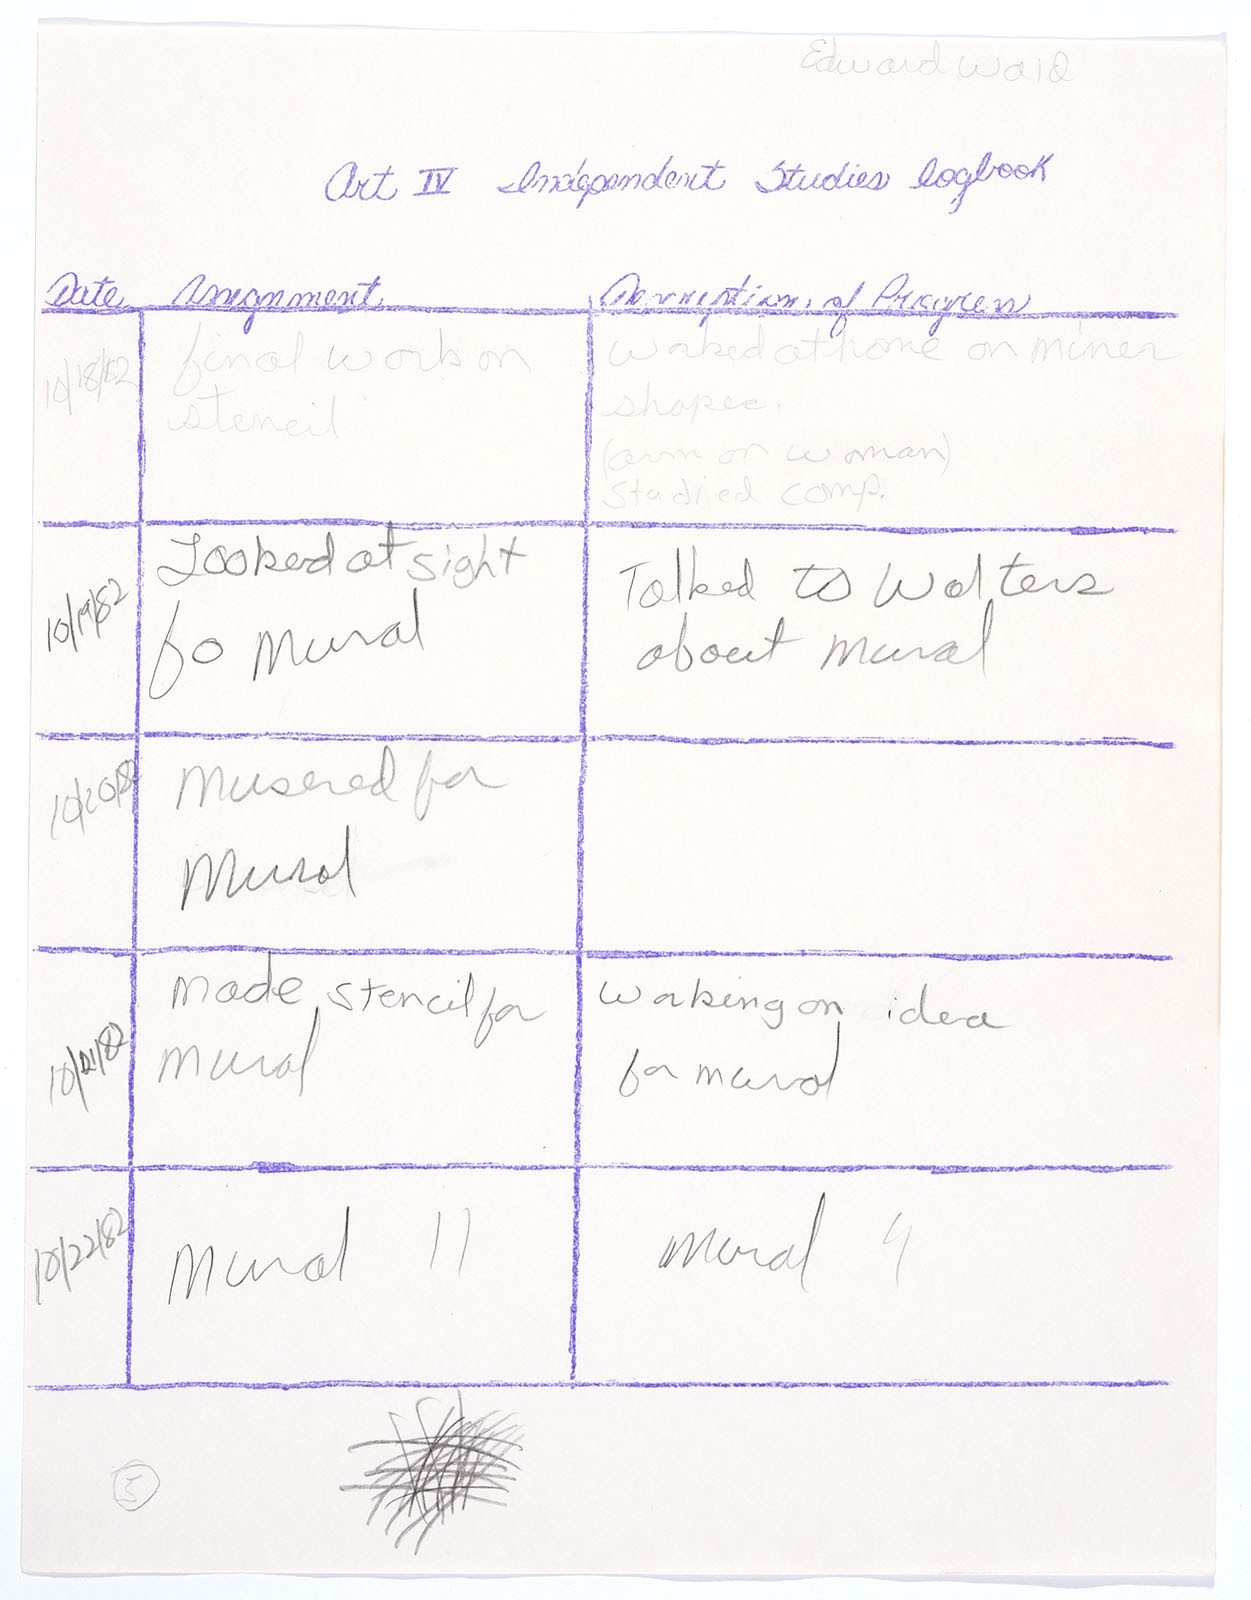 Edward Wald
Art IV Independent Studies logbook
Date Assignment Description of Progress
10/18/82
final work on
stencil
worked at home on miner
shapes.
(arm on woman)
studied comp.
10/19/82
Looked at sight
fo Mural
Talked to Walters
about mural
10/20/82
Musered for
Mural
10/21/82
made stencil for
mural
working on idea
for mural
10/22/82
Mural 11
mural 4
5